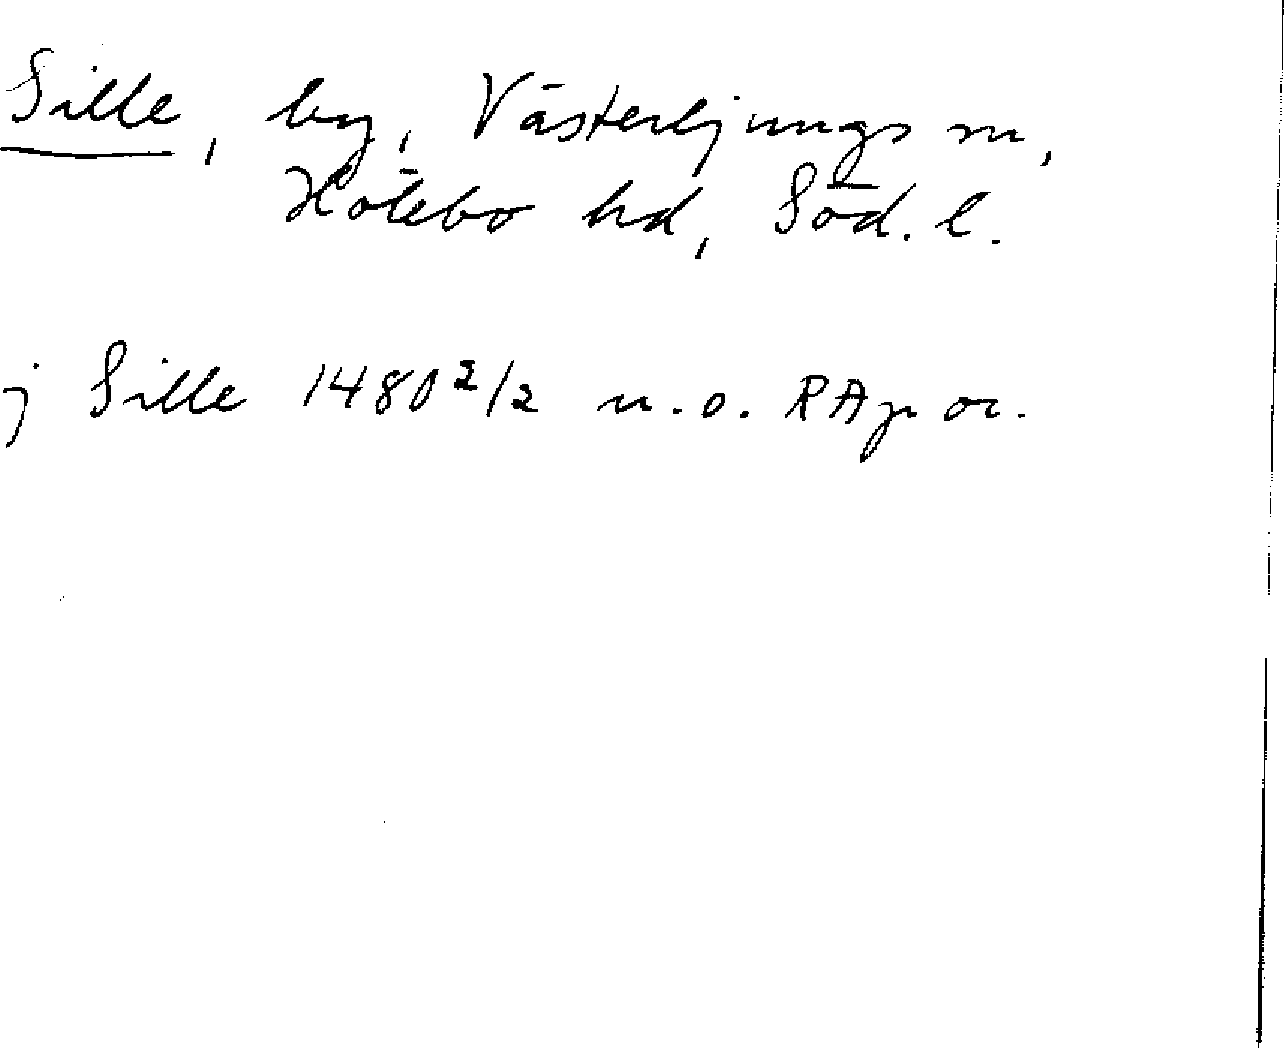 Sille, by, Västerljungs sn,
Hölebo hd, Söd. l.
j Sille 1480 2/2 u.o. RAp or.